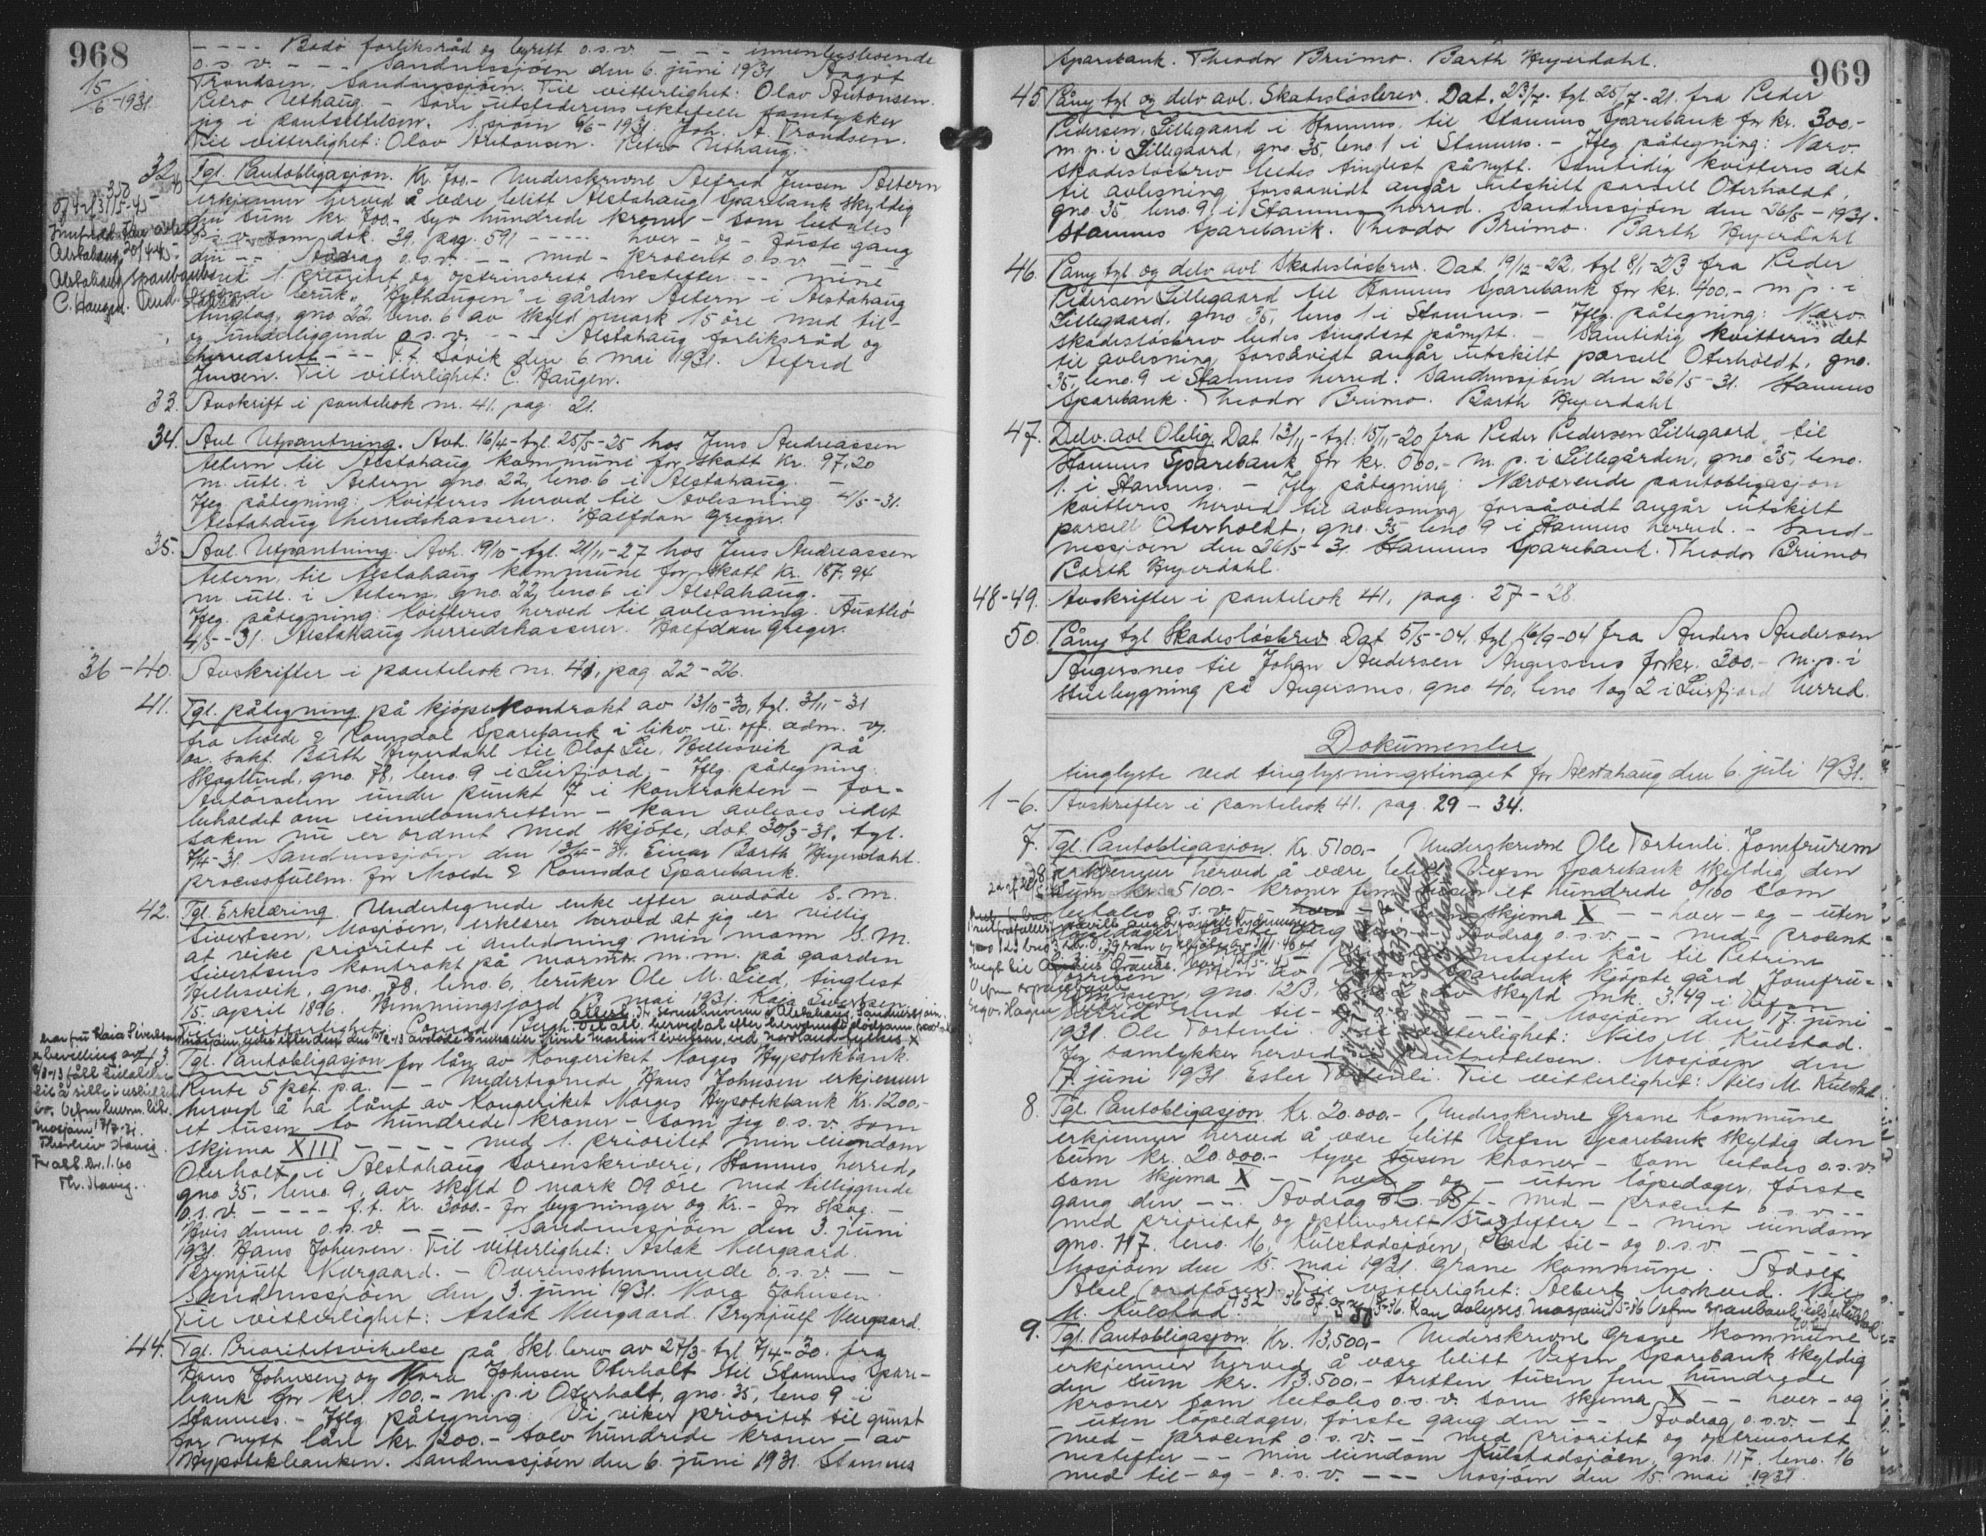 968
15/6-1931
- - - - Bodø forliksråd og byrett o.s.v. - - - innenbysboende
o.s.v. - - - Sandnessjøen den 6. juni 1931. Aagot
Trondsen, Sandnessjøen. Til vitterlighet: Olav Antonsen.
Petro Uthaug. - Som utstederens ektefelle samtykker
jeg i pantsettelsen. S.sjøen 6/6-1931. Joh. A. Trondsen.
Til vitterlighet: Olav Antonsen. Petro Uthaug.
32. Tgl. Pantobligasjon. Kr. 700.- Underskrevne Alfred Jensen Altern
erkjenner herved å være blitt Alstahaug Sparebank skyldig
den sum kr. 700.- syv hundrede kroner - som betales
o.s.v. som dok. 39, pag. 591 - - - - - hver - og - første gang
den - - Avdrag o.s.v. - - med - procent o.s.v.
med 1 prioritet og optrinsrett nestefter - - mine
eiende bruk, "Nythaugen" i gården Altern i Alstahaug
tinglag, gno. 22, bno. 6 av skyld mark 15 øre med til-
og underliggende o.s.v. - - - Alstahaug forliksråd og
herredsrett - - - P.t. Søvik den 6. mai 1931. Alfred
Jensen. Til vitterlighet: C. Haugen.
Alstahaug 30/4-45
Alstahaug Sparebank
33. Avskrift i pantebok nr. 41, pag. 21.
34. Avl. Utpantning. Avh. 16/4- tgl. 25/5-25 hos Jens Andreassen
Altern til Alstahaug kommune for skatt kr. 97,20
m. utl. i Altern gno. 22, bno. 6 i Alstahaug. -
Iflg. påtegning: Kvitteres herved til avlesning 4/5-31.
Alstahaug herredskasserer. Halfdan Greger.
35. Avl. Utpantning. Avh. 19/10- tgl. 21/11-27 hos Jens Andreassen
Altern, til Alstahaug kommune for skatt kr. 187,94
m. utl. i Altern, gno. 22, bno. 6 i Alstahaug. -
Iflg. påtegning: Kvitteres herved til avlesning. Austbø
4/5-31. Alstahaug herredskasserer. Halfdan Greger.
36-40. Avskrifter i pantebok nr. 41, pag. 22-26.
41. Tgl. påtegning på kjøpekontrakt av 13/10-30, tgl. 3/11-31
fra Molde & Romsdal Sparebank i likv. u. off. adm. v.
os. sakf. Barth Heyerdahl til Olaf Lie, Hellesvik på
Skoglund, gno. 78, bno. 9 i Leirfjord. - Iflg. påtegning:
Anførselen under punkt 7 i kontrakten - for-
beholdet om eiendomsretten - kan avleses idet
saken nu er ordnet med skjøte, dat. 30/3-31, tgl.
7/4-31. Sandnessjøen den 13/4-31. Einar Barth Heyerdahl.
procesfullm. for Molde & Romsdal Sparebank.
42. Tgl. Erklæring. Undertegnede enke efter avdøde S.M.
Sivertsen, Mosjøen, erklærer herved at jeg er villig
at vike prioritet i anledning min mann S.M.
Sivertsens kontrakt på marmor m.m. på gaarden
Hellesvik, gno. 78, bno. 6, bruker Ole M. Lied, tinglest
15. april 1896. Hemmingsfjord 13. mai 1931. Kaia Sivertsen.
Til vitterlighet: Conrad Bech.
43 Tgl. Pantobligasjon for lån av Kongeriket Norges Hypotekbank.
Rente 5 pct. p.a. - - Undertegnede Hans Johnsen erkjenner
herved å ha lånt av Kongeriket Norges Hypotekbank kr. 1200.-
et tusen to hundrede kroner - som jeg o.s.v. som
skjema XIII - - - - med 1. prioritet min eiendom
Oterholt i Alstahaug sorenskriveri, Stamnes herred,
gno 35, bno. 9, av skyld 0 mark 09 øre med tilliggende
o.s.v. - - - - f.t. kr. 3000.- for bygninger og kr. - for skog. -
Hvis denne o.s.v. - - - - Sandnessjøen den 3. juni
1931. Hans Johnsen. Til vitterlighet: Aslak Nergaard.
Brynjulf Nergaard. - Overensstemmende o.s.v. - -
Sandnessjøen den 3. juni 1931. Nora Johnsen.
Til vitterlighet: Aslak Nergaard. Brynjulf Nergaard.
44. Tgl. Prioritetsvikelse på Skl. brev av 27/3- tgl. 7/4-30. fra
Hans Johnsen og Nora Johnsen Oterholt til Stamnes Spare-
bank for kr. 100.- m.p. i Oterholt, gno. 35, bno. 9 i
Stamnes. - Iflg. påtegning: Vi viker prioritet til gunst
for nytt lån kr. 1200.- tolv hundrede kroner - av
Hypotekbanken. Sandnessjøen den 6. juni 1931. Stamnes
969
Sparebank. Theodor Brimo. Barth Heyerdahl.
45. Påny tgl. og delv. avl. Skadesløsbrev. Dat. 23/7- tgl. 25/7-21. fra Peder
Pedersen, Lillegaard i Stamnes, til Stamnes Sparebank for kr. 300.-
m.p. i Lillegaard, gno. 35, bno. 1 i Stamnes. - Iflg. påtegning: Nærv.
skadesløsbrev bedes tinglest på nytt. Samtidig kvitteres det
til avlesning forsaavidt angår utskilt parsell Oterholdt,
gno. 35, bno. 9, i Stamnes herred. Sandnessjøen den 26/5-1931.
Stamnes Sparebank. Theodor Brimo. Barth Heyerdahl
46. Påny tgl. og delv. avl. Skadesløsbrev. Dat. 19/12-22, tgl. 8/1-23 fra Peder
Pedersen Lillegaard til Stamnes Sparebank for kr. 400.- m.p. i
Lillegaard, gno. 35, bno. 1 i Stamnes. - Iflg. påtegning: Nærv.
skadesløsbrev bedes tinglest på nytt. - Samtidig kvitteres det
til avlesning forsåvidt angår utskilt parsell Oterholdt, gno.
35, bno. 9 i Stamnes herred. Sandnessjøen den 26/5-31. Stamnes
Sparebank. Theodor Brimo. Barth Heyerdahl
47. Delv. avl. Oblig. Dat. 13/11- tgl. 15/11-20 fra Peder Pedersen Lillegaard til
Stamnes Sparebank for kr. 600.- m.p. i Lillegården, gno 35, bno.
1. i Stamnes. - Iflg. påtegning: Nærværende pantobligasjon
kvitteres herved til avlesning forsåvidt angår utskilt
parsell Oterholdt, gno. 35, bno 9 i Stamnes herred. - Sand-
nessjøen den 26/5-31. Stamnes Sparebank. Theodor Brimo
Barth Heyerdahl.
48-49. Avskrifter i pantebok 41, pag. 27-28.
50. Påny tgl. Skadesløsbrev Dat. 5/5-04, tgl. 16/9-04 fra Anders Andersen
Angersnes til Johan Andersen Angersnes for kr. 300.- m.p. i
stuebygning på Angersnes, gno. 40, bno. 1 og 2 i Leirfjord herred.
Dokumenter
tinglyste ved tinglysningstinget for Alstahaug den 6. juli 1931.
1-6. Avskrifter i pantebok 41. pag. 29-34.
7. Tgl. Pantobligasjon. Kr. 5100.- Underskrevne Ole Tortenli, Jomfruremmen
erkjenner herved å være blitt Vefsn Sparebank skyldig den
sum kr. 5100.- kroner fem tusen et hundrede 0/100 som
betales o.s.v. som skjema X - - hver - og - uten
Avdrag o.s.v. - - med - procent
nestefter kår til Petrine
Sparebank kjøpte gård Jomfru-
remmen, gno. 123, av skyld mk. 3.49 i Vefsn
herred med til- Mosjøen den 17. juni
1931. Ole Tortenli. vitterlighet: Nils M. Kulstad.
Jeg samtykker herved pantsettelsen. Mosjøen den
17. juni 1931. Ester Tortenli. Til vitterlighet: Nils M. Kulstad
8. Tgl. Pantobligasjon. Kr. 20.000.- Underskrevne Grane Kommune
erkjenner herved å være blitt Vefsn Sparebank skyldig den
sum kr. 20.000.- tyve tusen kroner - som betales o.s.v.
som skjema X - - hver - og - uten løpedager, første
gang den - - - Avdrag - - med - procent o.s.v. - -
med prioritet og opt.rinsrett nestefter - - min eiendom
gno. 117, bno. 16, Kulstadsjøen, med til- og o.s.v. - - - -
Mosjøen den 15. mai 1931. Grane Kommune. Adolf
Aleil (ordfører). Til vitterlighet: Albert Morkved. Nils
M. Kulstad.
9. Tgl. Pantobligasjon. Kr. 13,500.- Underskrevne Grane kommune
erkjenner herved å være blitt Vefsn Sparebank skyldig
den sum kr. 13.500.- tretten tusen fem hundrede
kroner som betales o.s.v. som skjema X - - hver - og
- uten løpedager, første gang den - - Avdrag o.s.v. - -
med - procent o.s.v. - - med prioritet og optrinsrett
nestefter - - min eiendom Kulstadsjøen, gno. 117, bno. 16
med til- og - o.s.v. - - - Mosjøen den 15. mai 1931